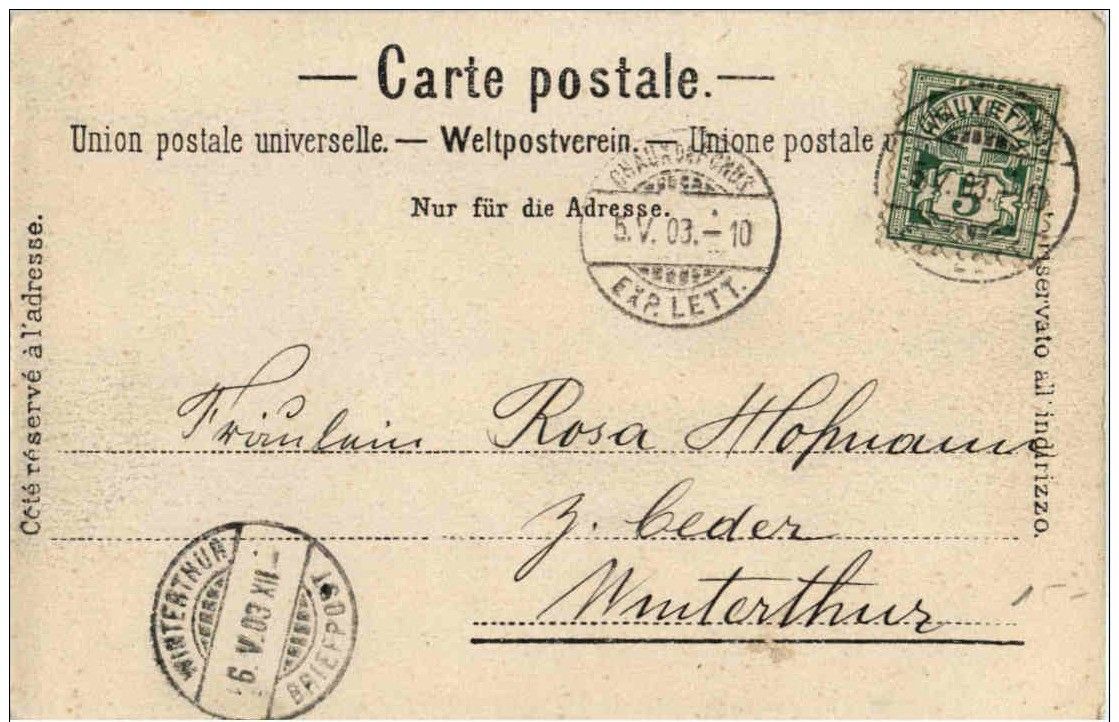 — Carte postale. —
Union postale universelle. — Weltpostverein. — Unione postale
Nur für die Adresse.
5
CHAUX-DE-FONDS
5.V.03.–10
EXP. LETT.
Côté réservé à l'adresse.
all' indirizzo.
Fräulein Rosa Hofmann
z. Ceder
Winterthur
WINTERTHUR
6.V.03 XII–
BRIEFPOST